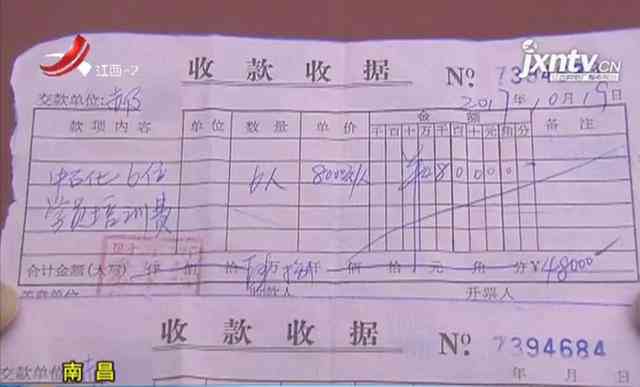 江西-2
jxntv.CN
收 款 收 据 Nº 739
交款单位: 2017年10月19日
款项内容 单位 数量 单价 金额 备注
千 百 十 万 千 百 十 元 角 分
中石化6位 6人 8000元/人 ¥ 4 8 0 0 0 0 0
学员培训费
合计金额(大写) 佰 拾 万 仟 佰 拾 元 角 分 ¥48000
收款单位 收款人 开票人
收 款 收 据 Nº 7394684
交款单位 年 月 日
南昌